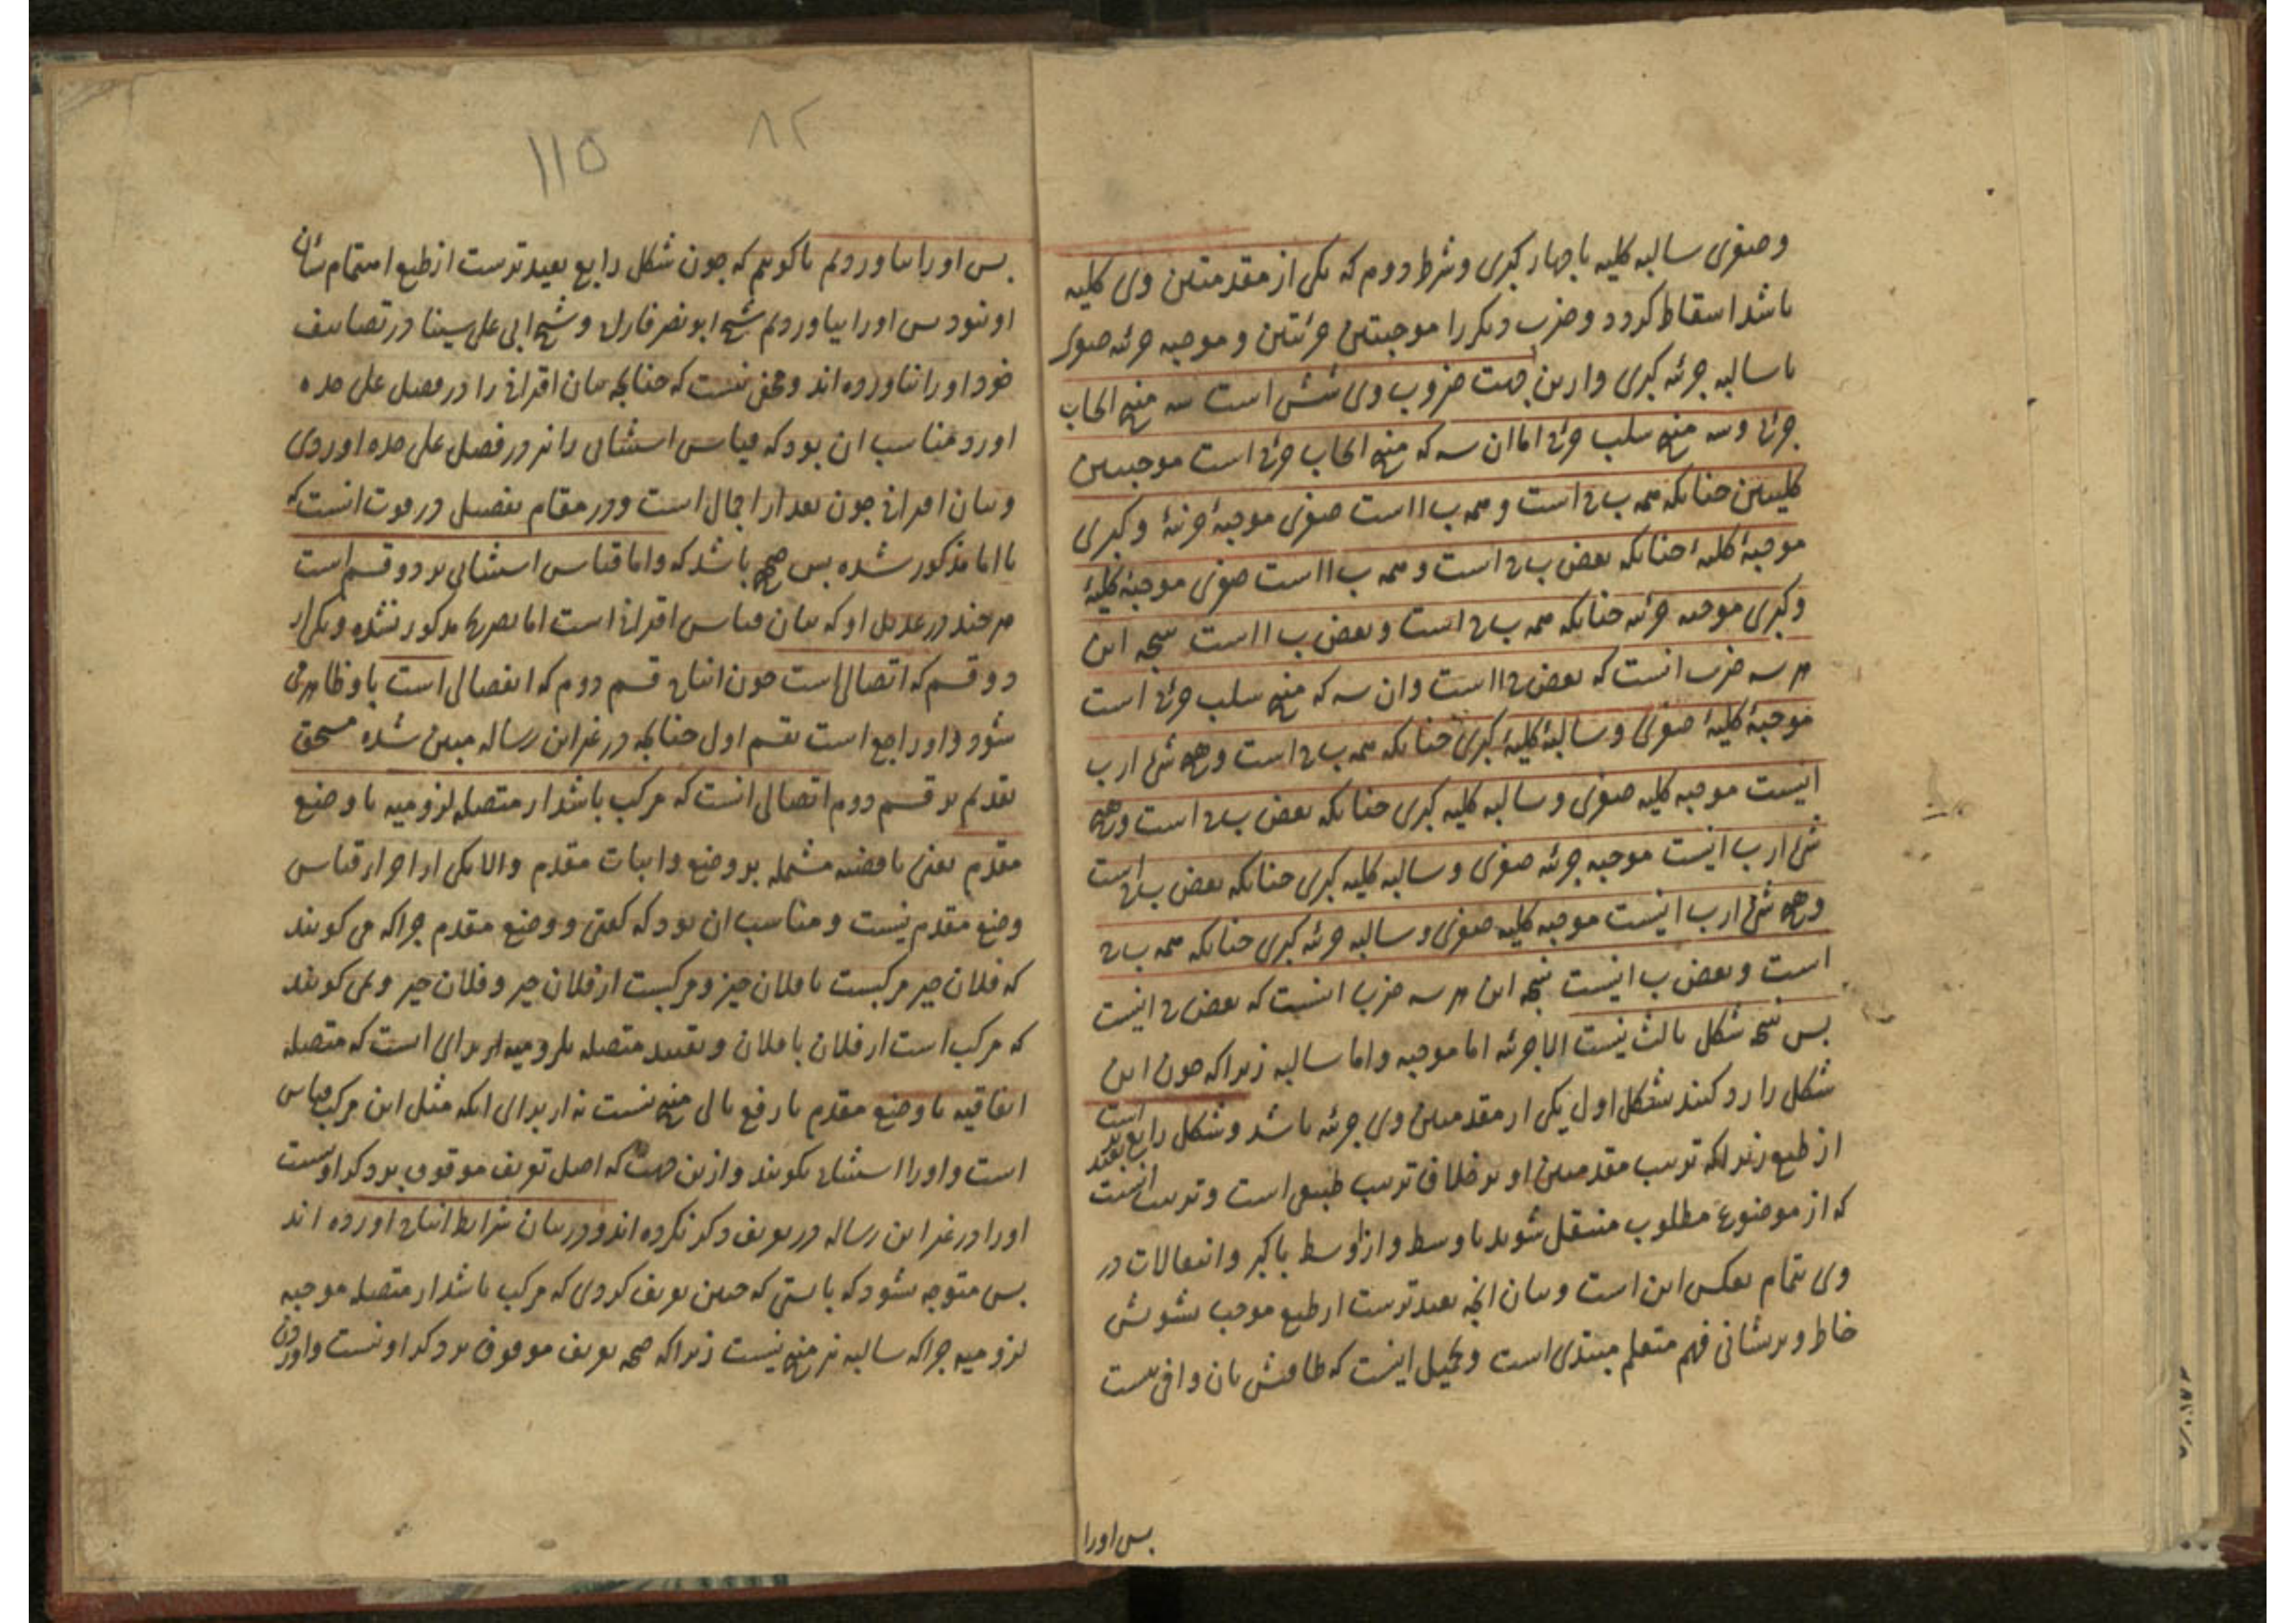 وصغری سالبه کلیه با چهار کبری وشرط دوم که یکی از مقدمتین وی کلیه
باشد اسقاط کردد وضرب دیکر را موجبتین جزئتین و موجبه جزئه صغری
با سالبه جزئه کبری وازین جهت ضروب وی شش است سه منتج ایجاب
جزئی وسه منتج سلب جزئی اما ان سه که منتج ایجاب جزئی است موجبتین
کلیتین چنانکه همه ب ج است و همه ب ا است صغری موجبهٔ جزئیهٔ وکبری
موجبهٔ کلیهٔ چنانکه بعض ب ج است و همه ب ا است صغری موجبهٔ کلیهٔ
وکبری موجبه جزئه چنانکه همه ب ج است وبعض ب ا است نتیجه این
هر سه ضرب انست که بعض ج ا است وان سه که منتج سلب جزئی است
موجبهٔ کلیهٔ صغری وسالبهٔ کلیهٔ کبری چنانکه همه ب ج است وهیچ شئ از ب
ا نیست موجبه کلیه صغری وسالبه کلیه کبری چنانکه بعض ب ج است وهیچ
شئ از ب ا نیست موجبه جزئه صغری وسالبه کلیه کبری چنانکه بعض ب ج است
وهیچ شئ از ب ا نیست موجبه کلیه صغری وسالبه جزئه کبری چنانکه همه ب ج
است وبعض ب ا نیست نتیجه این هر سه ضرب انست که بعض ج ا نیست
پس نتیجه شکل ثالث نیست الا جزئه اما موجبه واما سالبه زیرا که چون این
شکل را رد کنند بشکل اول یکی از مقدمتین وی جزئه باشد وشکل رابع بعید تر است
از طبع زیرا که ترتیب مقدمتین او بر خلاف ترتیب طبیعی است وترتیب انست
که از موضوع مطلوب منتقل شوند باوسط واز اوسط باکبر وانتقالات در
وی بتمام بعکس این است وبیان انچه بعید ترست از طبع موجب تشویش
خاطر وپریشانی فهم متعلم مبتدی است
پس اورا
۸۲
۱۱۵
پس اورا نیاوردیم یا کوییم که چون شکل رابع بعید ترست از طبع اهتمام بشان
او نبود پس اورا نیاوردیم شیخ ابونصر فارابی وشیخ ابی علی سینا در تصانیف
خود اورا نیاورده اند ومخفی نیست که چنانچه بیان اقترانی را در فصل علی حده
اورد مناسب ان بود که قیاس استثنائی را نیز در فصل علی حده اوردی
وبیان اقترانی چون بعد از اجمال است ودر مقام تفصیل در قوت انست که
با اما مذکور شده پس صحیح باشد که واما قیاس استثنائی بر دو قسم است
هرچند در عدیل او که بیان قیاس اقترانی است اما بصریح مذکور نشده ویکی از
دو قسم که اتصالی است چون انتاج قسم دوم که انفصالی است باو ظاهر می
شود و اورا جع است بقسم اول چنانچه در غیر این رساله مبین شده مستحق
تقدیم بر قسم دوم اتصالی انست که مرکب باشد از متصله لزومیه با وضع
مقدم یعنی با قضیه مشتمله بر وضع واثبات مقدم والا یکی از اجزاء قیاس
وضع مقدم نیست و مناسب ان بود که کفتی ووضع مقدم چرا که می کویند
که فلان چیز مرکبست با فلان چیز ومرکبست از فلان چیز وفلان چیز ونمی کویند
که مرکب است از فلان با فلان وتقیید متصله بلزومیه از برای است که متصله
اتفاقیه با وضع مقدم یا رفع تالی منتج نیست نه از برای انکه مثل این مرکب قیاس
است واورا استثنائی نکویند وازین جهت که اصل تعریف موقوف بر ذکر او نیست
اورا در غیر این رساله در تعریف ذکر نکرده اند ودر بیان شرایط انتاج اورده اند
پس متوجه شود که بایستی که چنین تعریف کردی که مرکب باشد از متصله موجبه
لزومیه چرا که سالبه نیز منتج نیست زیرا که صحه تعریف موقوف بر ذکر او نیست واوردن